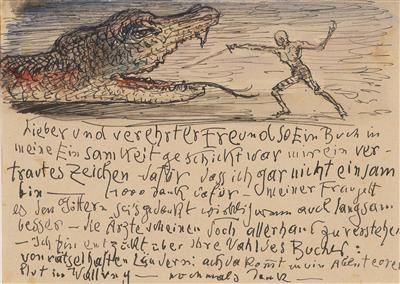 Lieber und verehrter Freund so Ein Buch in
meine Einsamkeit geschickt war mir ein ver-
trautes Zeichen dafür dass ich gar nicht einsam
bin — 1000 dank dafür — Meiner Frau geht
es den Göttern sei's gedankt wirklich wenn auch langsam
besser — die Ärzte scheinen doch allerhand zu verstehen
— Ich bin entzückt über Ihre Wahl des Buches:
von rätselhaften Ländern: ach da kommt mir Abenteurer
Blut in Wallung — nochmals Dank —